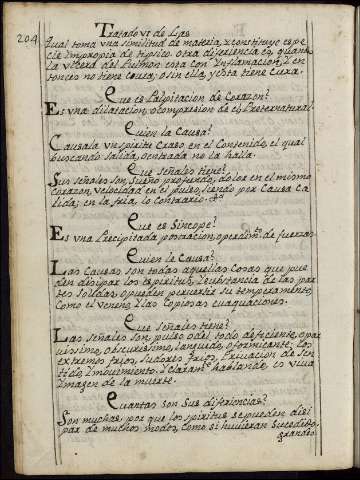 204
Tratado vi de Lias
qual toma una similitud de materia, y constituye espe
cie impropia de tipsico. otra diferiencia es, quando
la ulcera del Pulmon esta con Inflamacion, y en
tonces no tiene Causa; o sin ella, y esta tiene Cura.
Que es Palpitacion de Corazon?
Es una dilatacion, o compresion de el, Preternatural.
Quien la Causa?
Causala un spirite Craso en el Contenido, el qual
buscando salida, o entrada no la halla.
Que señales tiene?
Sus señales son sueño profundo, dolor en el mismo
Corazon, velocidad en el pulso, siendo por Causa Ca
lida; en la fria, lo contrario.
Que es Sincope?
Es una Precipitada postracion, o perdim.to de fuerzas
Quien la Causa?
Las Causas son todas aquellas Cosas que pue
den disipar los espiritus, y substancia de las par
tes solidas, o pueden pervertir su temperamento,
Como el veneno, y las Copiosas evaquaciones.
Que señales tiene?
Las señales son, pulso del todo deficiente, o par
vissimo, obscurissimo, languido, o formicante; los
extremos frios, sudores frios, privacion de sen
tido, y movimiento. Y claram.te hablando, es viva
Imagen de la muerte.
Quantas son sus diferiencias?
Son muchas, por que los spiritus se pueden disi
par de muchos modos, como si huvieran sucedido
grandes